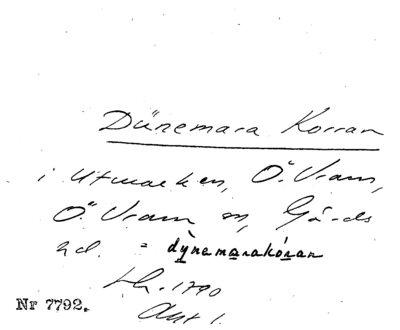 Dünemara Korran
i Utmarken, Ö. Vram,
Ö. Vram sn, Gärds
hd. = dỳnemarakóran
Lh. 1790
Akt 1.
Nr 7792.